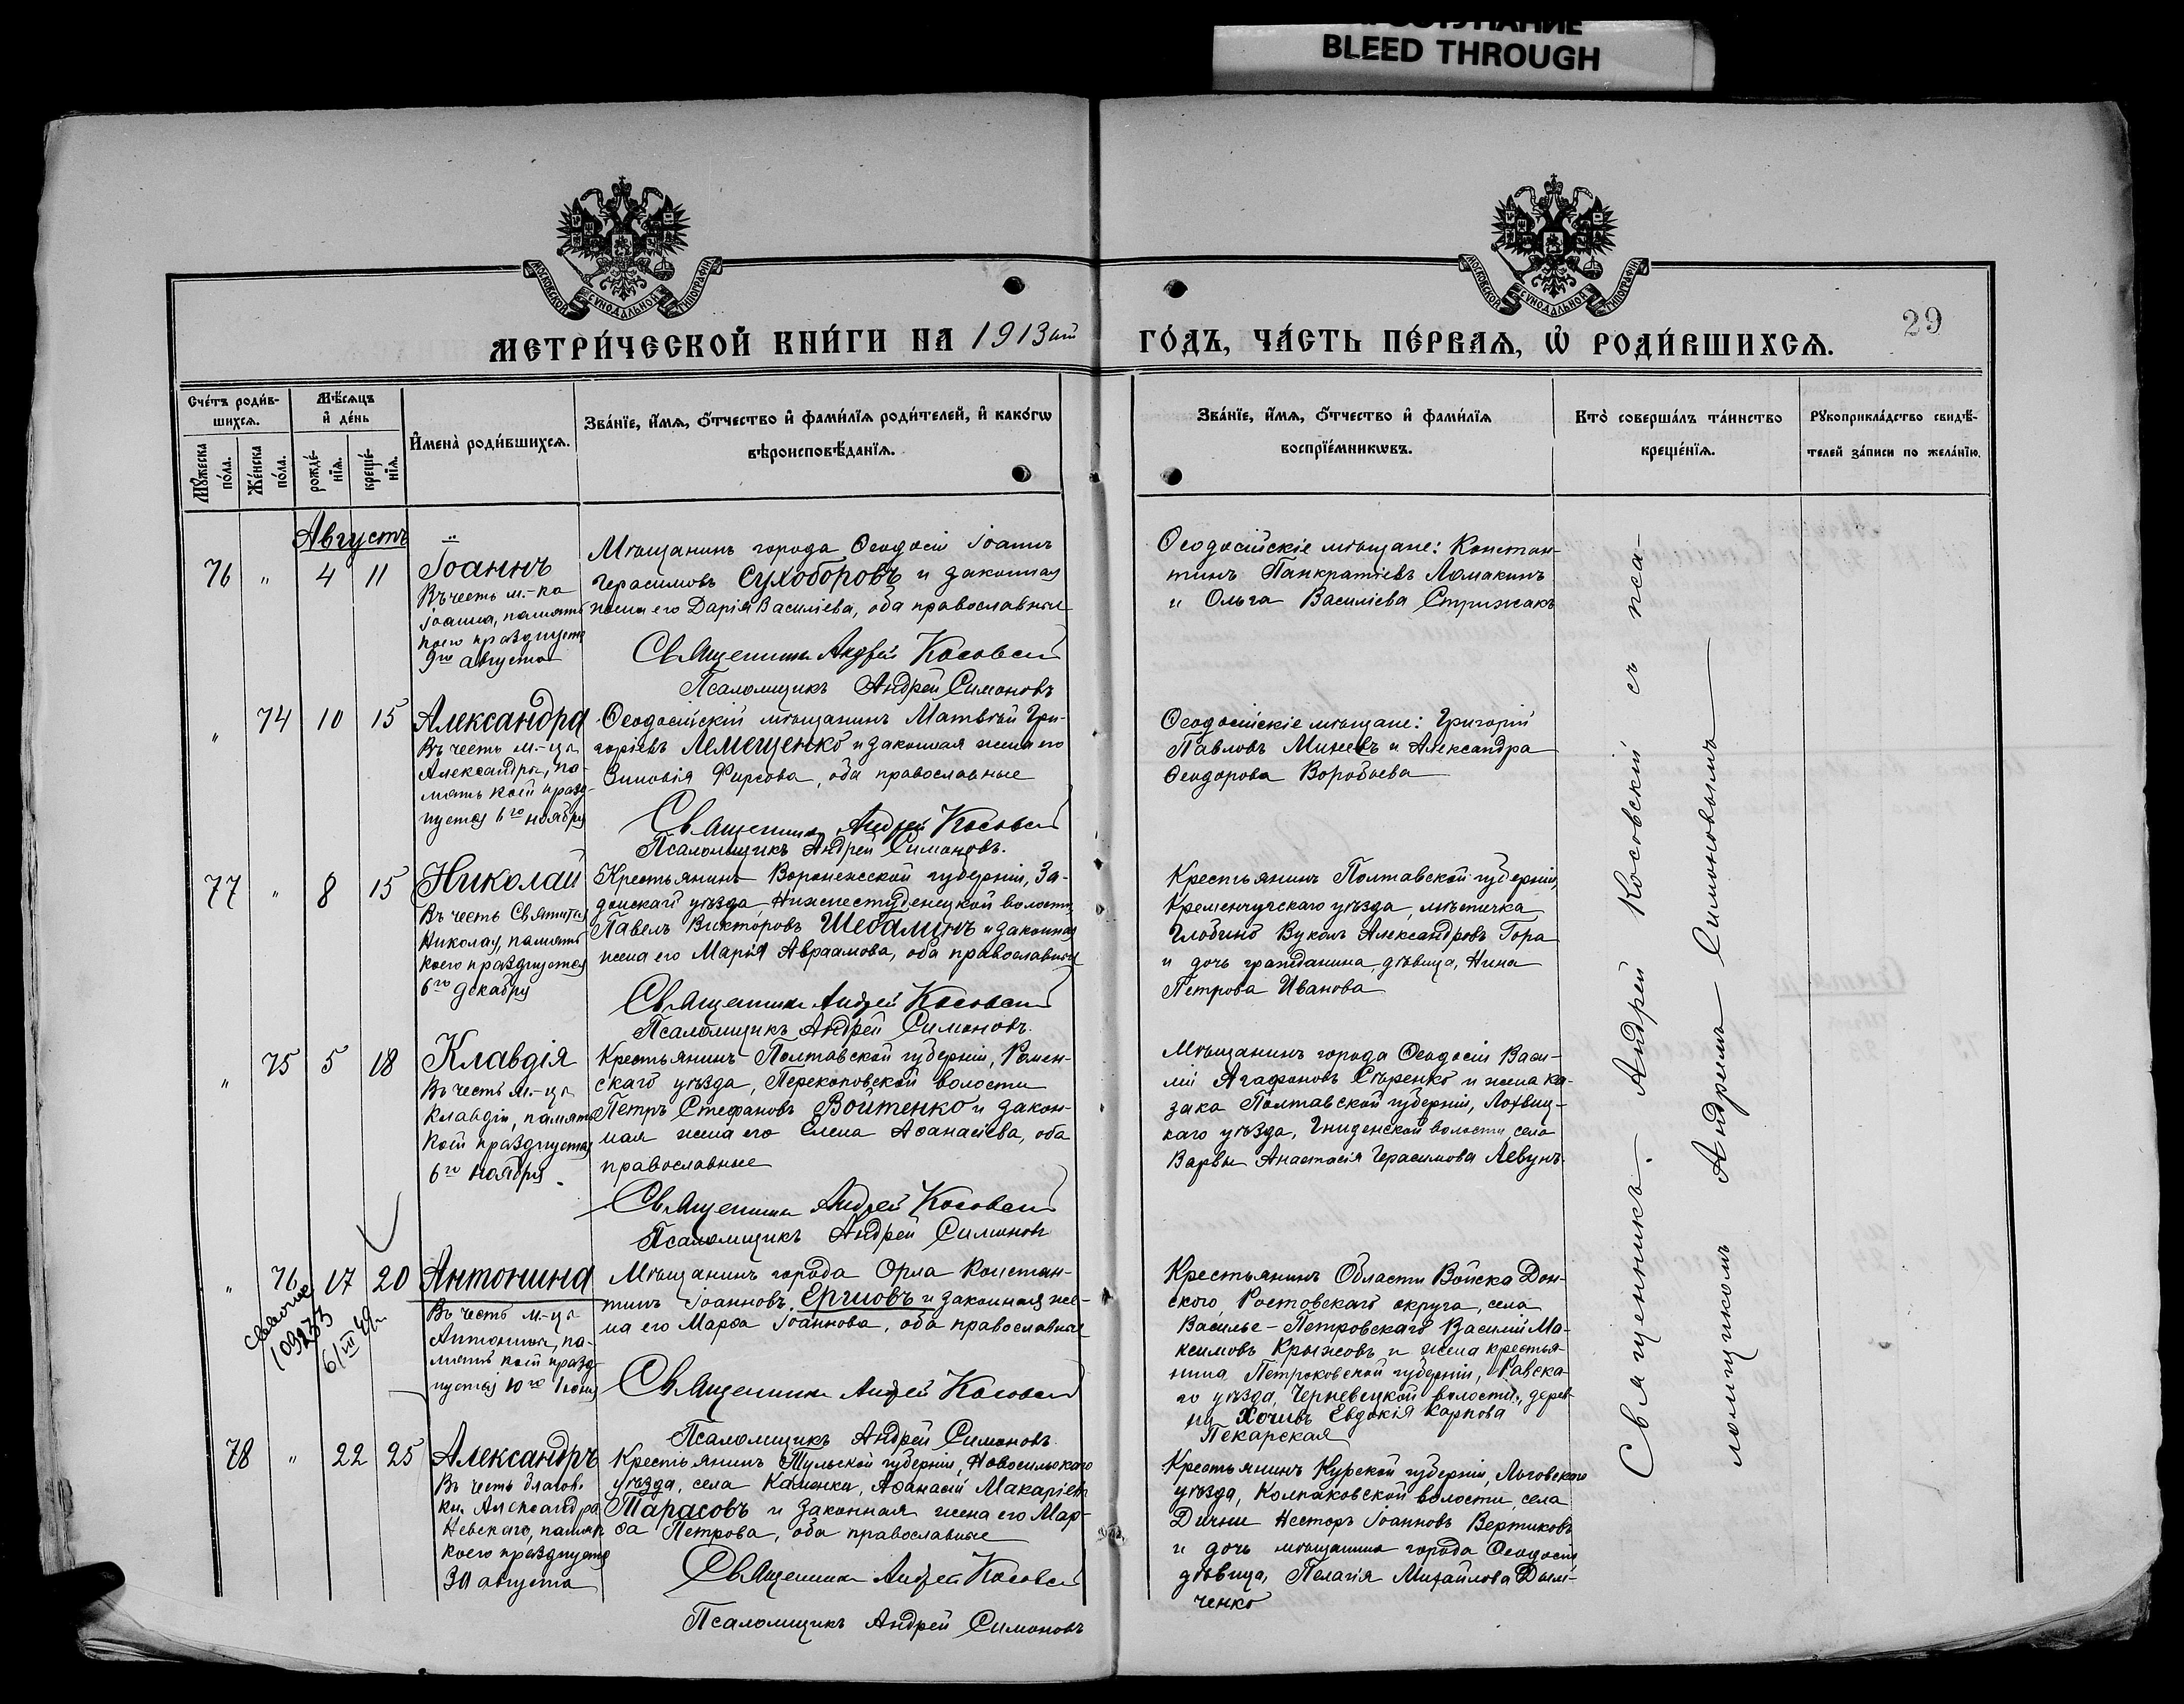 ПРОСТУПАНИЕ
BLEED THROUGH
МОСКОВСКОЙ СѴНОДАЛЬНОЙ ТИПОГРАФІИ
МОСКОВСКОЙ СѴНОДАЛЬНОЙ ТИПОГРАФІИ
29
МЕТРИ́ЧЕСКОЙ КНИ́ГИ НА 1913ый ГО́ДЪ, ЧА́СТЬ ПЕ́РВАѦ, Ѡ РОДИ́ВШИХСѦ.
Сче́тъ роди́в-
шихсѧ.
Мѣ́сѧцъ
и҆ де́нь
Мꙋ́жеска
по́ла.
Же́нска
по́ла.
рожде́-
нїѧ.
креще́-
нїѧ.
И҆мена̀ роди́вшихсѧ.
Зва́нїе, и҆́мѧ, ѻ҆́тчество и҆ фами́лїѧ роди́телей, и҆ како́гѡ
вѣроисповѣ́данїѧ.
Зва́нїе, и҆́мѧ, ѻ҆́тчество и҆ фами́лїѧ
воспрїе́мникѡвъ.
Кто̀ соверша́лъ та́инство
креще́нїѧ.
Рꙋкоприкла́дство свидѣ́-
телей за́писи по жела́нїю.
Августъ
76 " 4 11
Іоаннъ
Въ честь м.-ка
Іоанна, память
коего празднуется
9го августа
Мѣщанинъ города Ѳеодосіи Іоаннъ
Герасимовъ Сухоборовъ и законная
жена его Дарія Василіева, оба православные
Священникъ Андрей Косовскій
Псаломщикъ Андрей Симоновъ
Ѳеодосійскіе мѣщане: Констан-
тинъ Панкратіевъ Ломакинъ
и Ольга Василіева Стрижакъ
" 74 10 15
Александра
Въ честь м.-цы
Александры, па-
мять коей празд-
нуется 6го ноября
Ѳеодосійскій мѣщанинъ Матвѣй Гри-
горіевъ Лемещенко и законная жена его
Зиновія Фирсова, оба православные
Священникъ Андрей Косовскій
Псаломщикъ Андрей Симоновъ.
Ѳеодосійскіе мѣщане: Григорій
Павловъ Минеевъ и Александра
Ѳеодорова Воробьева
77 " 8 15
Николай
Въ честь Святителя
Николая, память
коего празднуется
6го декабря
Крестьянинъ Воронежской губерніи, За-
донскаго уѣзда, Нижнестуденецкой волости,
Павелъ Викторовъ Шебалинъ и законная
жена его Марія Авраамова, оба православные
Священникъ Андрей Косовскій
Псаломщикъ Андрей Симоновъ.
Крестьянинъ Полтавской губерніи,
Кременчугскаго уѣзда, мѣстечка
Глобино Вуколъ Александровъ Гора
и дочь гражданина, дѣвица, Нина
Петрова Иванова
" 75 5 18
Клавдія
Въ честь м.-цы
Клавдіи, память
коей празднуется
6го ноября.
Крестьянинъ Полтавской губерніи, Ромен-
скаго уѣзда, Перекоповской волости
Петръ Стефановъ Войтенко и закон-
ная жена его Елена Аѳанасіева, оба
православные
Священникъ Андрей Косовскій
Псаломщикъ Андрей Симоновъ
Мѣщанинъ города Ѳеодосіи Васи-
лій Агафоновъ Сѣренко и жена ка-
зака Полтавской губерніи, Лохвиц-
каго уѣзда, Гнидинской волости, села
Варвы Анастасія Герасимова Левунъ.
" 76 17 20
109233
6/III 49г
Антонина
Въ честь м.-цы
Антонины, па-
мять коей празд-
нуется 10го Іюня
Мѣщанинъ города Орла Констан-
тинъ Іоанновъ Ергиовъ и законная же-
на его Марѳа Іоаннова, оба православные
Священникъ Андрей Косовскій
Псаломщикъ Андрей Симоновъ.
Крестьянинъ Области Войска Дон-
ского, Ростовскаго округа, села
Василье-Петровскаго Василій Ма-
ксимовъ Крыжовъ и жена крестья-
нина, Петроковской губерніи, Равска-
го уѣзда, Черневецкой волости, дерев-
ни Хочивъ Евдокія Карпова
Пекарская
78 " 22 25
Александръ
Въ честь благов.
кн. Александра
Невскаго, память
коего празднуется
30 августа
Крестьянинъ Тульской губерніи, Новосильскаго
уѣзда, села Каменки, Аѳанасій Макаріевъ
Тарасовъ и законная жена его Мар-
ѳа Петрова, оба православные
Священникъ Андрей Косовскій
Псаломщикъ Андрей Симоновъ
Крестьянинъ Курской губерніи, Льговскаго
уѣзда, Колпаковской волости, села
Дични Несторъ Іоанновъ Вертиковъ
и дочь мѣщанина города Ѳеодосіи
дѣвица, Пелагія Михайлова Дым-
ченко
Священникъ Андрей Косовскій съ пса-
ломщикомъ Андреемъ Симоновымъ